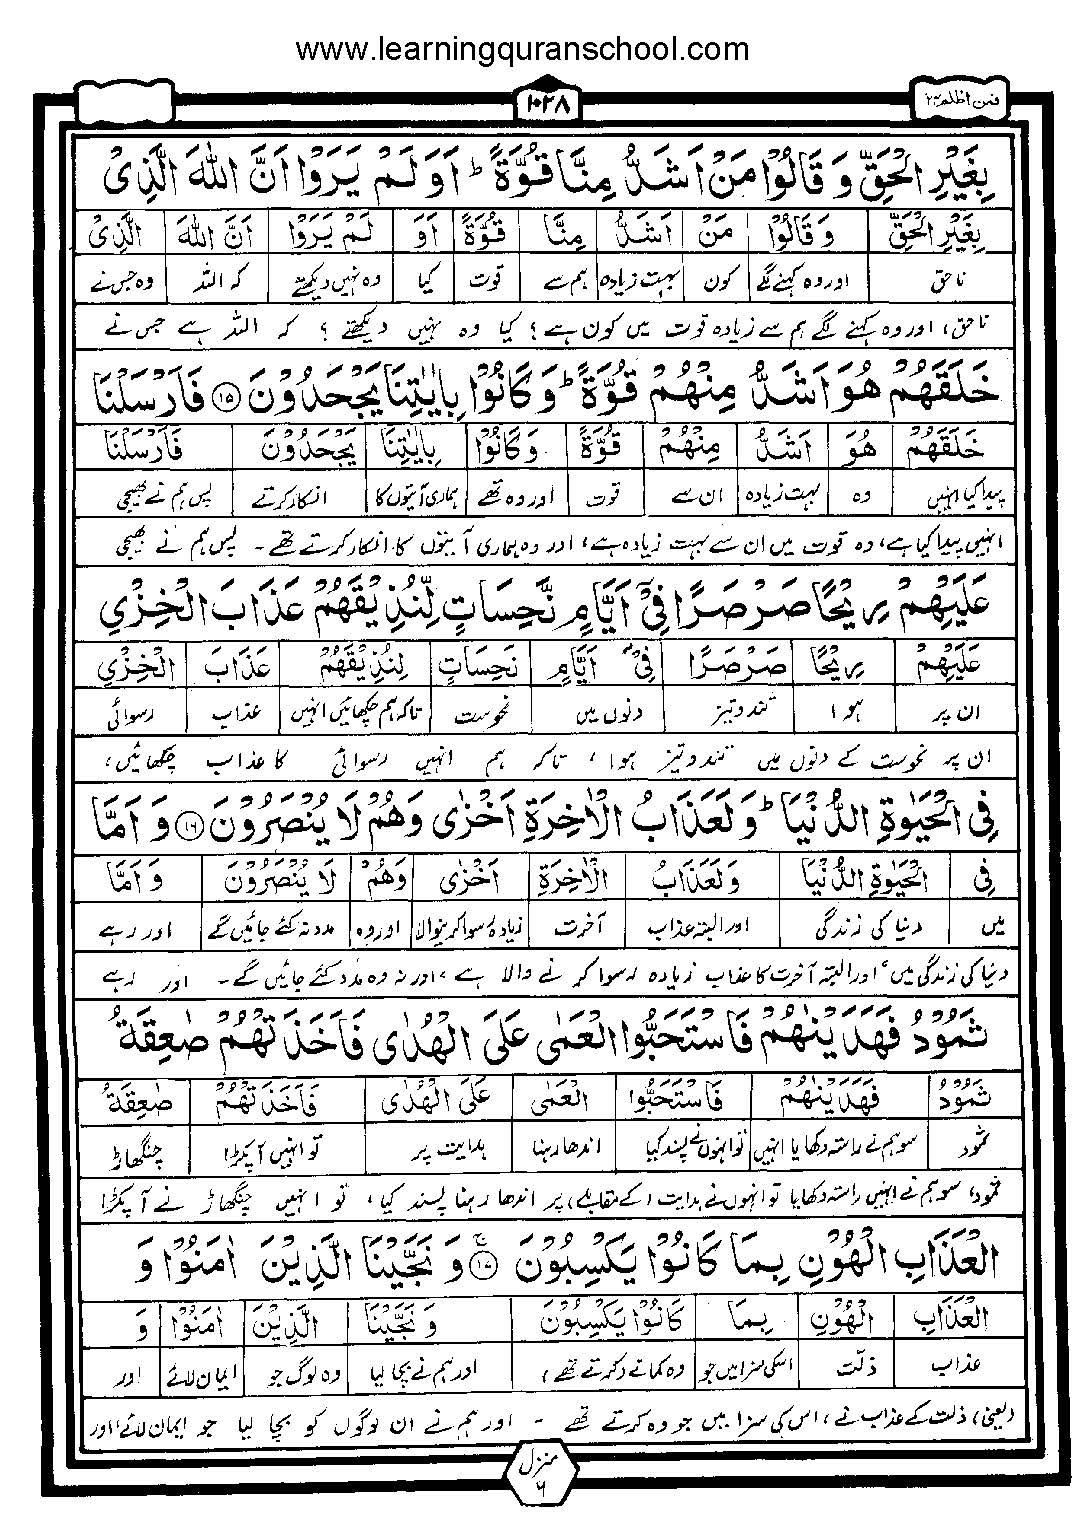 www.learningquranschool.com
فمن اظلم ۲۴
۱۰۲۸
بِغَيْرِ الْحَقِّ وَ قَالُوْا مَنْ اَشَدُّ مِنَّا قُوَّةً ؕ اَوَ لَمْ يَرَوْا اَنَّ اللّٰهَ الَّذِیْ
بِغَيْرِ الْحَقِّ وَ قَالُوْا مَنْ اَشَدُّ مِنَّا قُوَّةً اَوَ لَمْ يَرَوْا اَنَّ اللّٰهَ الَّذِیْ
ناحق اور وہ کہنے لگے کون بہت زیادہ ہم سے قوت کیا وہ نہیں دیکھتے کہ اللہ وہ جس نے
ناحق، اور وہ کہنے لگے ہم سے زیادہ قوت میں کون ہے؟ کیا وہ نہیں دیکھتے؟ کہ اللہ ہے جس نے
خَلَقَهُمْ هُوَ اَشَدُّ مِنْهُمْ قُوَّةً ؕ وَ كَانُوْا بِاٰيٰتِنَا يَجْحَدُوْنَ ۝۱۵ فَاَرْسَلْنَا
خَلَقَهُمْ هُوَ اَشَدُّ مِنْهُمْ قُوَّةً وَ كَانُوْا بِاٰيٰتِنَا يَجْحَدُوْنَ فَاَرْسَلْنَا
پیدا کیا انہیں وہ بہت زیادہ ان سے قوت اور وہ تھے ہماری آیتوں کا انکار کرتے پس ہم نے بھیجی
انہیں پیدا کیا ہے، وہ قوت میں ان سے بہت زیادہ ہے، اور وہ ہماری آیتوں کا انکار کرتے تھے۔ پس ہم نے بھیجی
عَلَيْهِمْ رِيْحًا صَرْصَرًا فِیْۤ اَيَّامٍ نَّحِسَاتٍ لِّنُذِيْقَهُمْ عَذَابَ الْخِزْیِ
عَلَيْهِمْ رِيْحًا صَرْصَرًا فِیْۤ اَيَّامٍ نَحِسَاتٍ لِنُذِيْقَهُمْ عَذَابَ الْخِزْیِ
ان پر ہوا تند و تیز دنوں میں نحوست تاکہ ہم چکھائیں انہیں عذاب رسوائی
ان پر نحوست کے دنوں میں تند و تیز ہوا، تاکہ ہم انہیں رسوائی کا عذاب چکھائیں،
فِی الْحَيٰوةِ الدُّنْيَا ؕ وَ لَعَذَابُ الْاٰخِرَةِ اَخْزٰى وَ هُمْ لَا يُنْصَرُوْنَ ۝۱۶ وَ اَمَّا
فِی الْحَيٰوةِ الدُّنْيَا وَ لَعَذَابُ الْاٰخِرَةِ اَخْزٰى وَ هُمْ لَا يُنْصَرُوْنَ وَ اَمَّا
میں دنیا کی زندگی اور البتہ عذاب آخرت زیادہ رسوا کرنیوالا اور وہ مدد نہ کئے جائیں گے اور رہے
دنیا کی زندگی میں، اور البتہ آخرت کا عذاب زیادہ رسوا کرنے والا ہے، اور نہ وہ مدد کئے جائیں گے۔ اور رہے
ثَمُوْدُ فَهَدَيْنٰهُمْ فَاسْتَحَبُّوا الْعَمٰى عَلَى الْهُدٰى فَاَخَذَتْهُمْ صٰعِقَةُ
ثَمُوْدُ فَهَدَيْنٰهُمْ فَاسْتَحَبُّوا الْعَمٰى عَلَى الْهُدٰى فَاَخَذَتْهُمْ صٰعِقَةُ
ثمود سو ہم نے راستہ دکھایا انہیں تو انہوں نے پسند کیا اندھا رہنا ہدایت پر تو انہیں آ پکڑا چنگھاڑ
ثمود! سو ہم نے انہیں راستہ دکھایا تو انہوں نے ہدایت (کے مقابلے) پر اندھا رہنا پسند کیا، تو انہیں چنگھاڑ نے آ پکڑا
الْعَذَابِ الْهُوْنِ بِمَا كَانُوْا يَكْسِبُوْنَ ۝۱۷ وَ نَجَّيْنَا الَّذِيْنَ اٰمَنُوْا وَ
الْعَذَابِ الْهُوْنِ بِمَا كَانُوْا يَكْسِبُوْنَ وَ نَجَّيْنَا الَّذِيْنَ اٰمَنُوْا وَ
عذاب ذلّت اس کی سزا میں جو وہ کماتے (کرتے تھے) اور ہم نے بچا لیا وہ لوگ جو ایمان لائے اور
(یعنی) ذلت کے عذاب نے، اس کی سزا میں جو وہ کرتے تھے ۔ اور ہم نے ان لوگوں کو بچا لیا جو ایمان لائے اور
منزل
۶